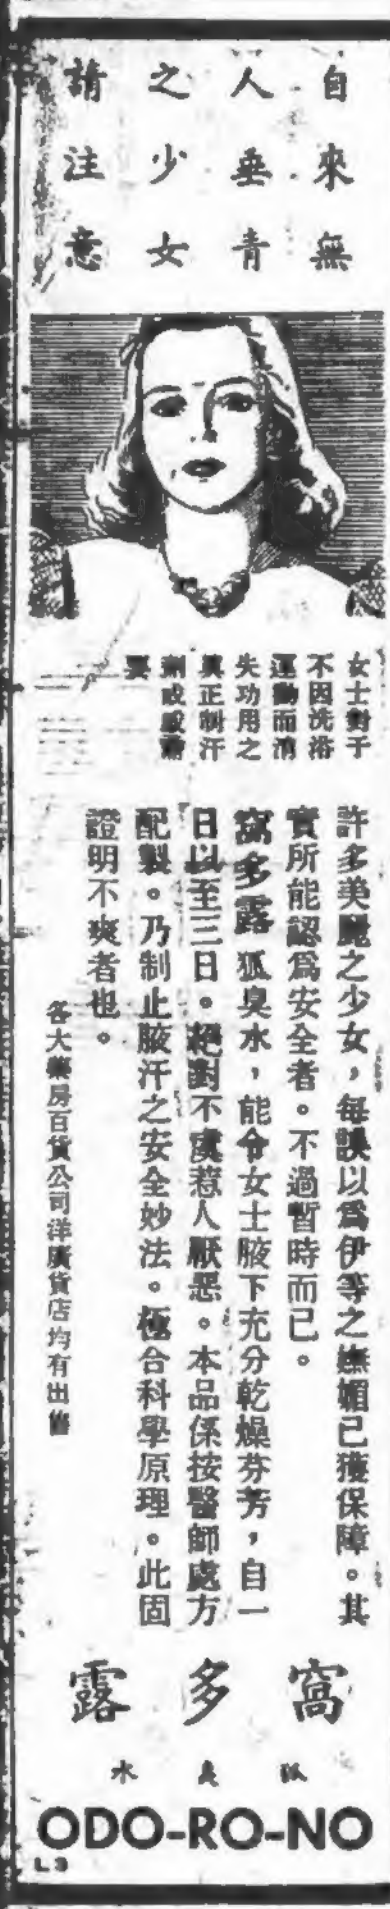 自來無
人垂青
之少女
請注意
女士對于
不因洗浴
運動而消
失功用之
真正制汗
劑或感需
要
許多美麗之少女，每誤以爲伊等之嫵媚已獲保障。其
實所能認爲安全者。不過暫時而已。
窩多露狐臭水，能令女士腋下充分乾燥芬芳，自一
日以至三日。絕對不虞惹人厭惡。本品係按醫師處方
配製。乃制止腋汗之安全妙法。極合科學原理。此固
證明不爽者也。
各大藥房百貨公司洋廣貨店均有出售
窩多露
狐臭水
ODO-RO-NO
L3